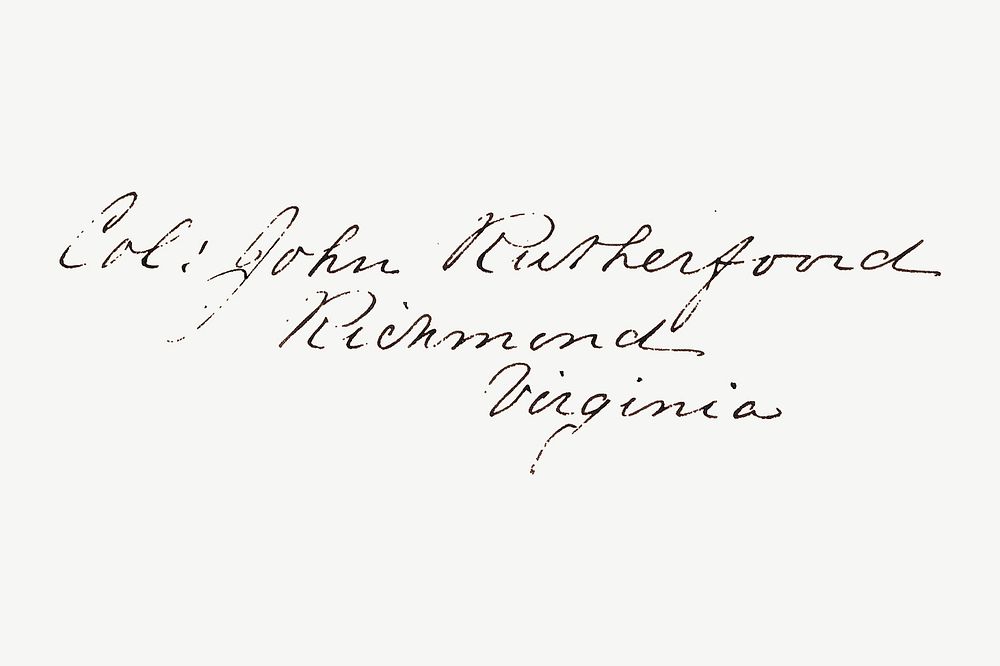 Col: John Rutherfoord
Richmond
Virginia